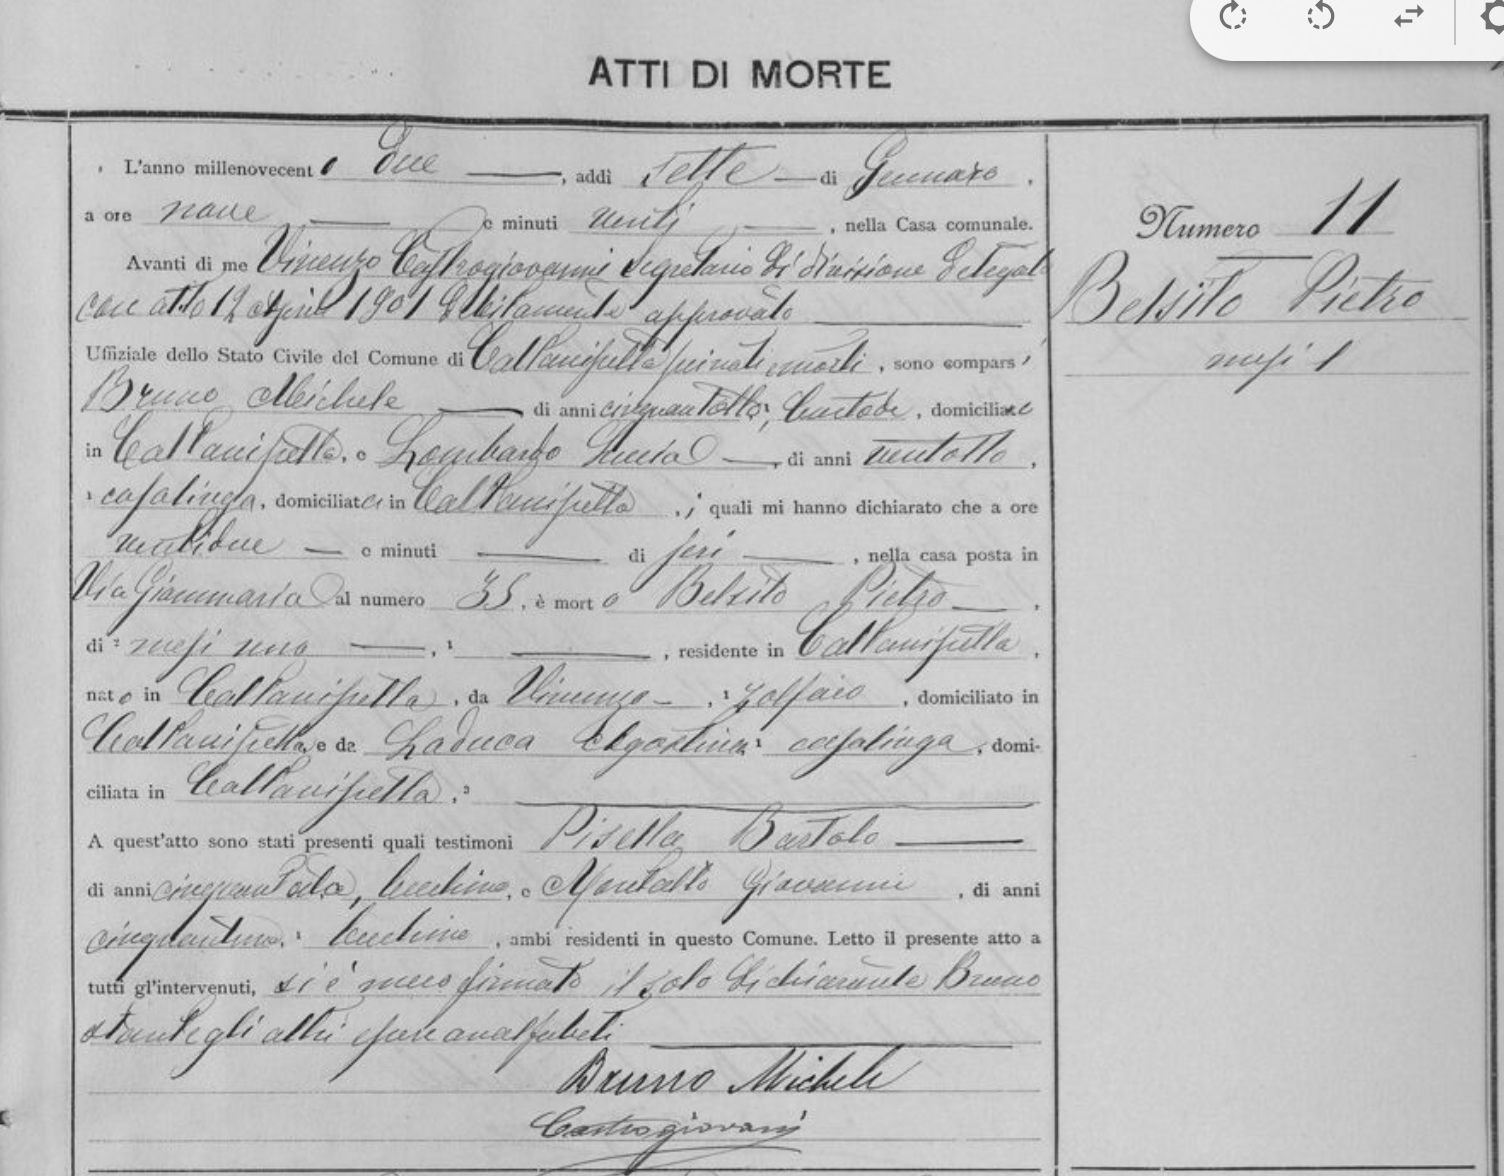 ATTI DI MORTE
L'anno millenovecento due, addì sette di Gennaro,
a ore nove e minuti venti, nella Casa comunale.
Avanti di me Vincenzo Castrogiovanni Segretario di divisione delegato
con atto 12 Aprile 1901 debitamente approvato
Uffiziale dello Stato Civile del Comune di Caltanissetta pei nati morti, sono comparsi
Bruno Michele di anni cinquantotto, Custode, domiciliato
in Caltanissetta, e Lombardo Lucia di anni ventotto,
¹ casalinga, domiciliata in Caltanissetta, i quali mi hanno dichiarato che a ore
ventidue e minuti di jeri, nella casa posta in
Via Giammaria al numero 35, è morto Belsito Pietro,
di ² mesi uno, ¹, residente in Caltanissetta,
nato in Caltanissetta, da Vincenzo, ¹ zolfaio, domiciliato in
Caltanissetta, e da Laduca Agostina, ¹ casalinga, domi-
ciliata in Caltanissetta. ³
A quest'atto sono stati presenti quali testimoni Pisella Bartolo
di anni becchino, e Montalto Giovanni, di anni
cinquantuno, ¹ becchino, ambi residenti in questo Comune. Letto il presente atto a
tutti gl'intervenuti, si è meco firmato il solo dichiarante Bruno
stante gli altri essere analfabeti
Bruno Michele
Castrogiovanni
Numero 11
Belsito Pietro
mesi 1